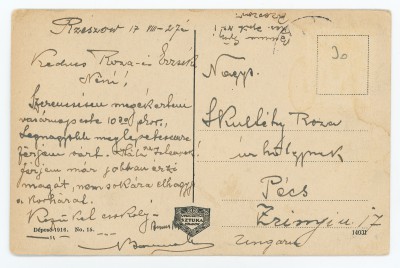 Rzeszów 17 VIII-27én
Kedves Roza és Erzsék
Néni!
Szerencsésen megérkeztem
vasárnap este 10 20 kor.
Legnagyobb meglepetésemre
férjem várt. Hála Istennek
férjem már jobban érzi
magát, nemsokára elhagyja
a kórházat.
Kezüket csókolja
SZTUKA
Dépend-1916. No. 16.
30
Nagys.
Skultéty Roza
úrhölgynek
Pécs
Zrinyi u 17
Ungarn
1403f